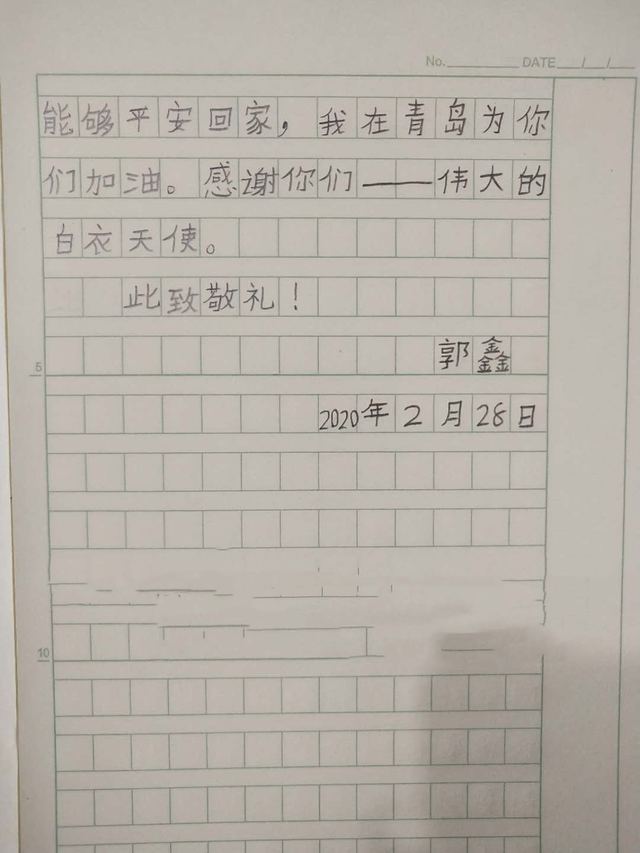 No. DATE / /
能够平安回家，我在青岛为你
们加油。感谢你们——伟大的
白衣天使。
此致敬礼！
5
郭鑫鑫
2020年2月28日
10